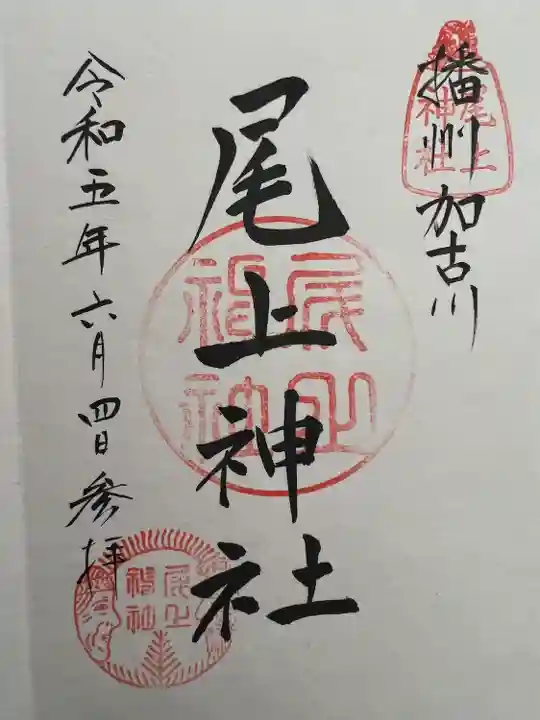 播州加古川
尾上
神社
尾上神社
尾上
神社
令和五年六月四日参拝
尾上
神社